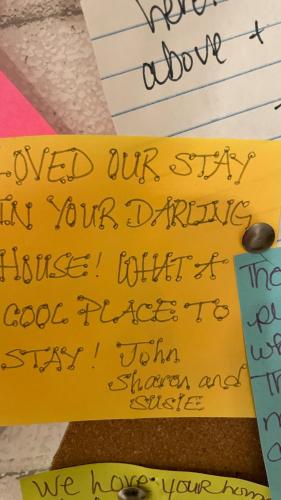 above +
LOVED OUR STAY
IN YOUR DARLING
HOUSE! WHAT A
COOL PLACE TO
STAY! John
Sharon and
SUSIE
we have your home